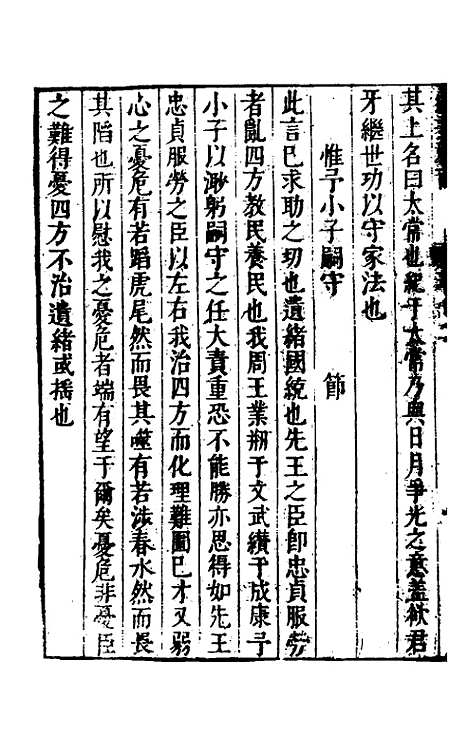 其上名曰太常也紀于太常乃與日月爭光之意蓋欲君
牙繼世功以守家法也
惟予小子嗣守　節
此言己求助之切也遺緒國統也先王之臣卽忠貞服勞
者亂四方教民養民也我周王業刱于文武纘于成康予
小子以渺躬嗣守之任大責重恐不能勝亦思得如先王
忠貞服勞之臣以左右我治四方而化理難圖已才又弱
心之憂危有若蹈虎尾然而畏其噬有若涉春水然而長
其陷也所以慰我之憂危者端有望于爾矣憂危非憂臣
之難得憂四方不治遺緒或搖也